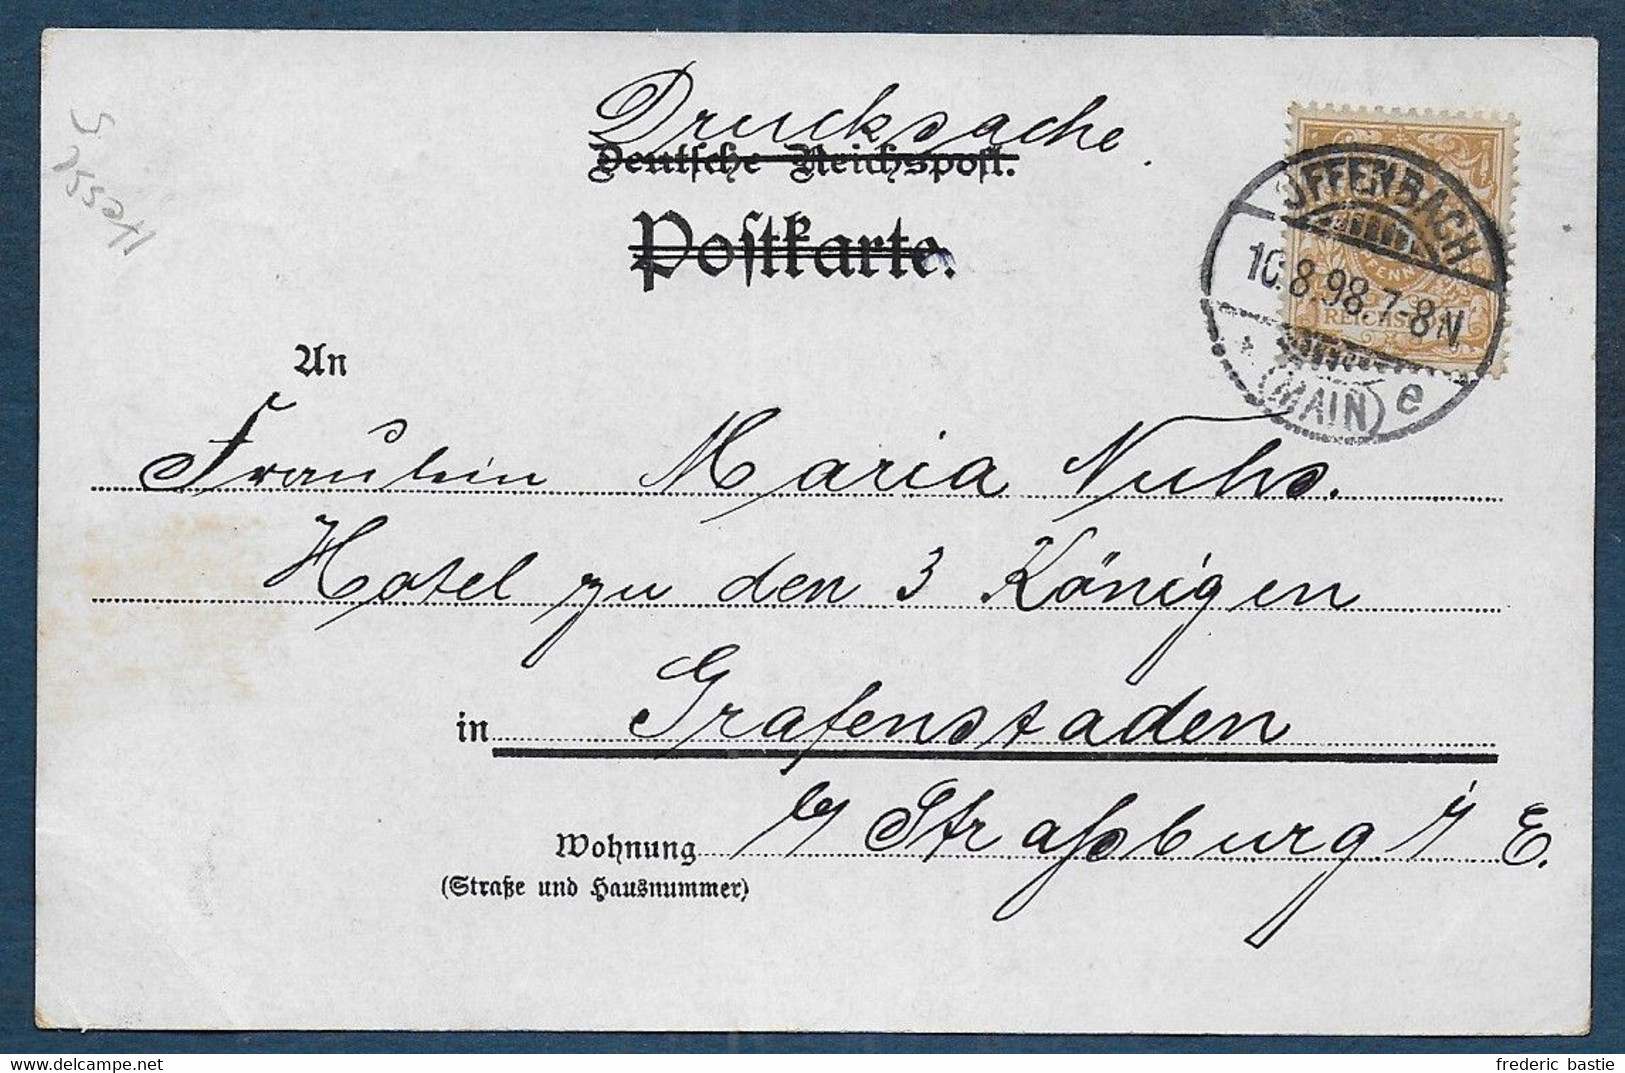 Drucksache.
Deutsche Reichspost.
Postkarte.
OFFENBACH
10.8.98.7-8N
(MAIN) e
PFENNIG
REICHSPOST
An
Fräulein Maria Nuhs.
Hotel zu den 3 Königen
in Grafenstaden
b/ Straßburg i/ E.
Wohnung
(Straße und Hausnummer)
delcampe.net
frederic bastie